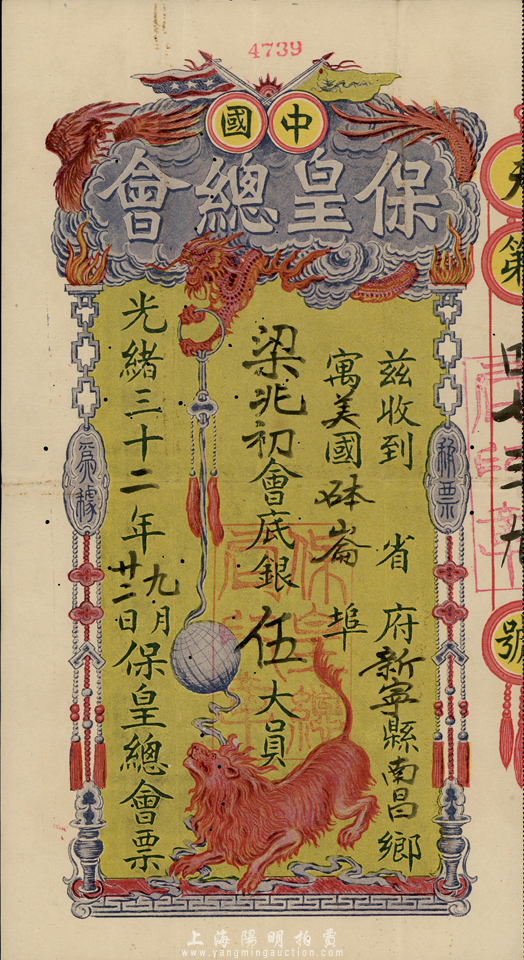 4739
中國
保皇總會
茲收到 省 府新寧縣南昌鄉
寓美國砵崙埠
梁兆初會底銀伍大員
光緒三十二年九月廿二日保皇總會票
第
四七三九
號
上海陽明拍賣
www.yangmingauction.com